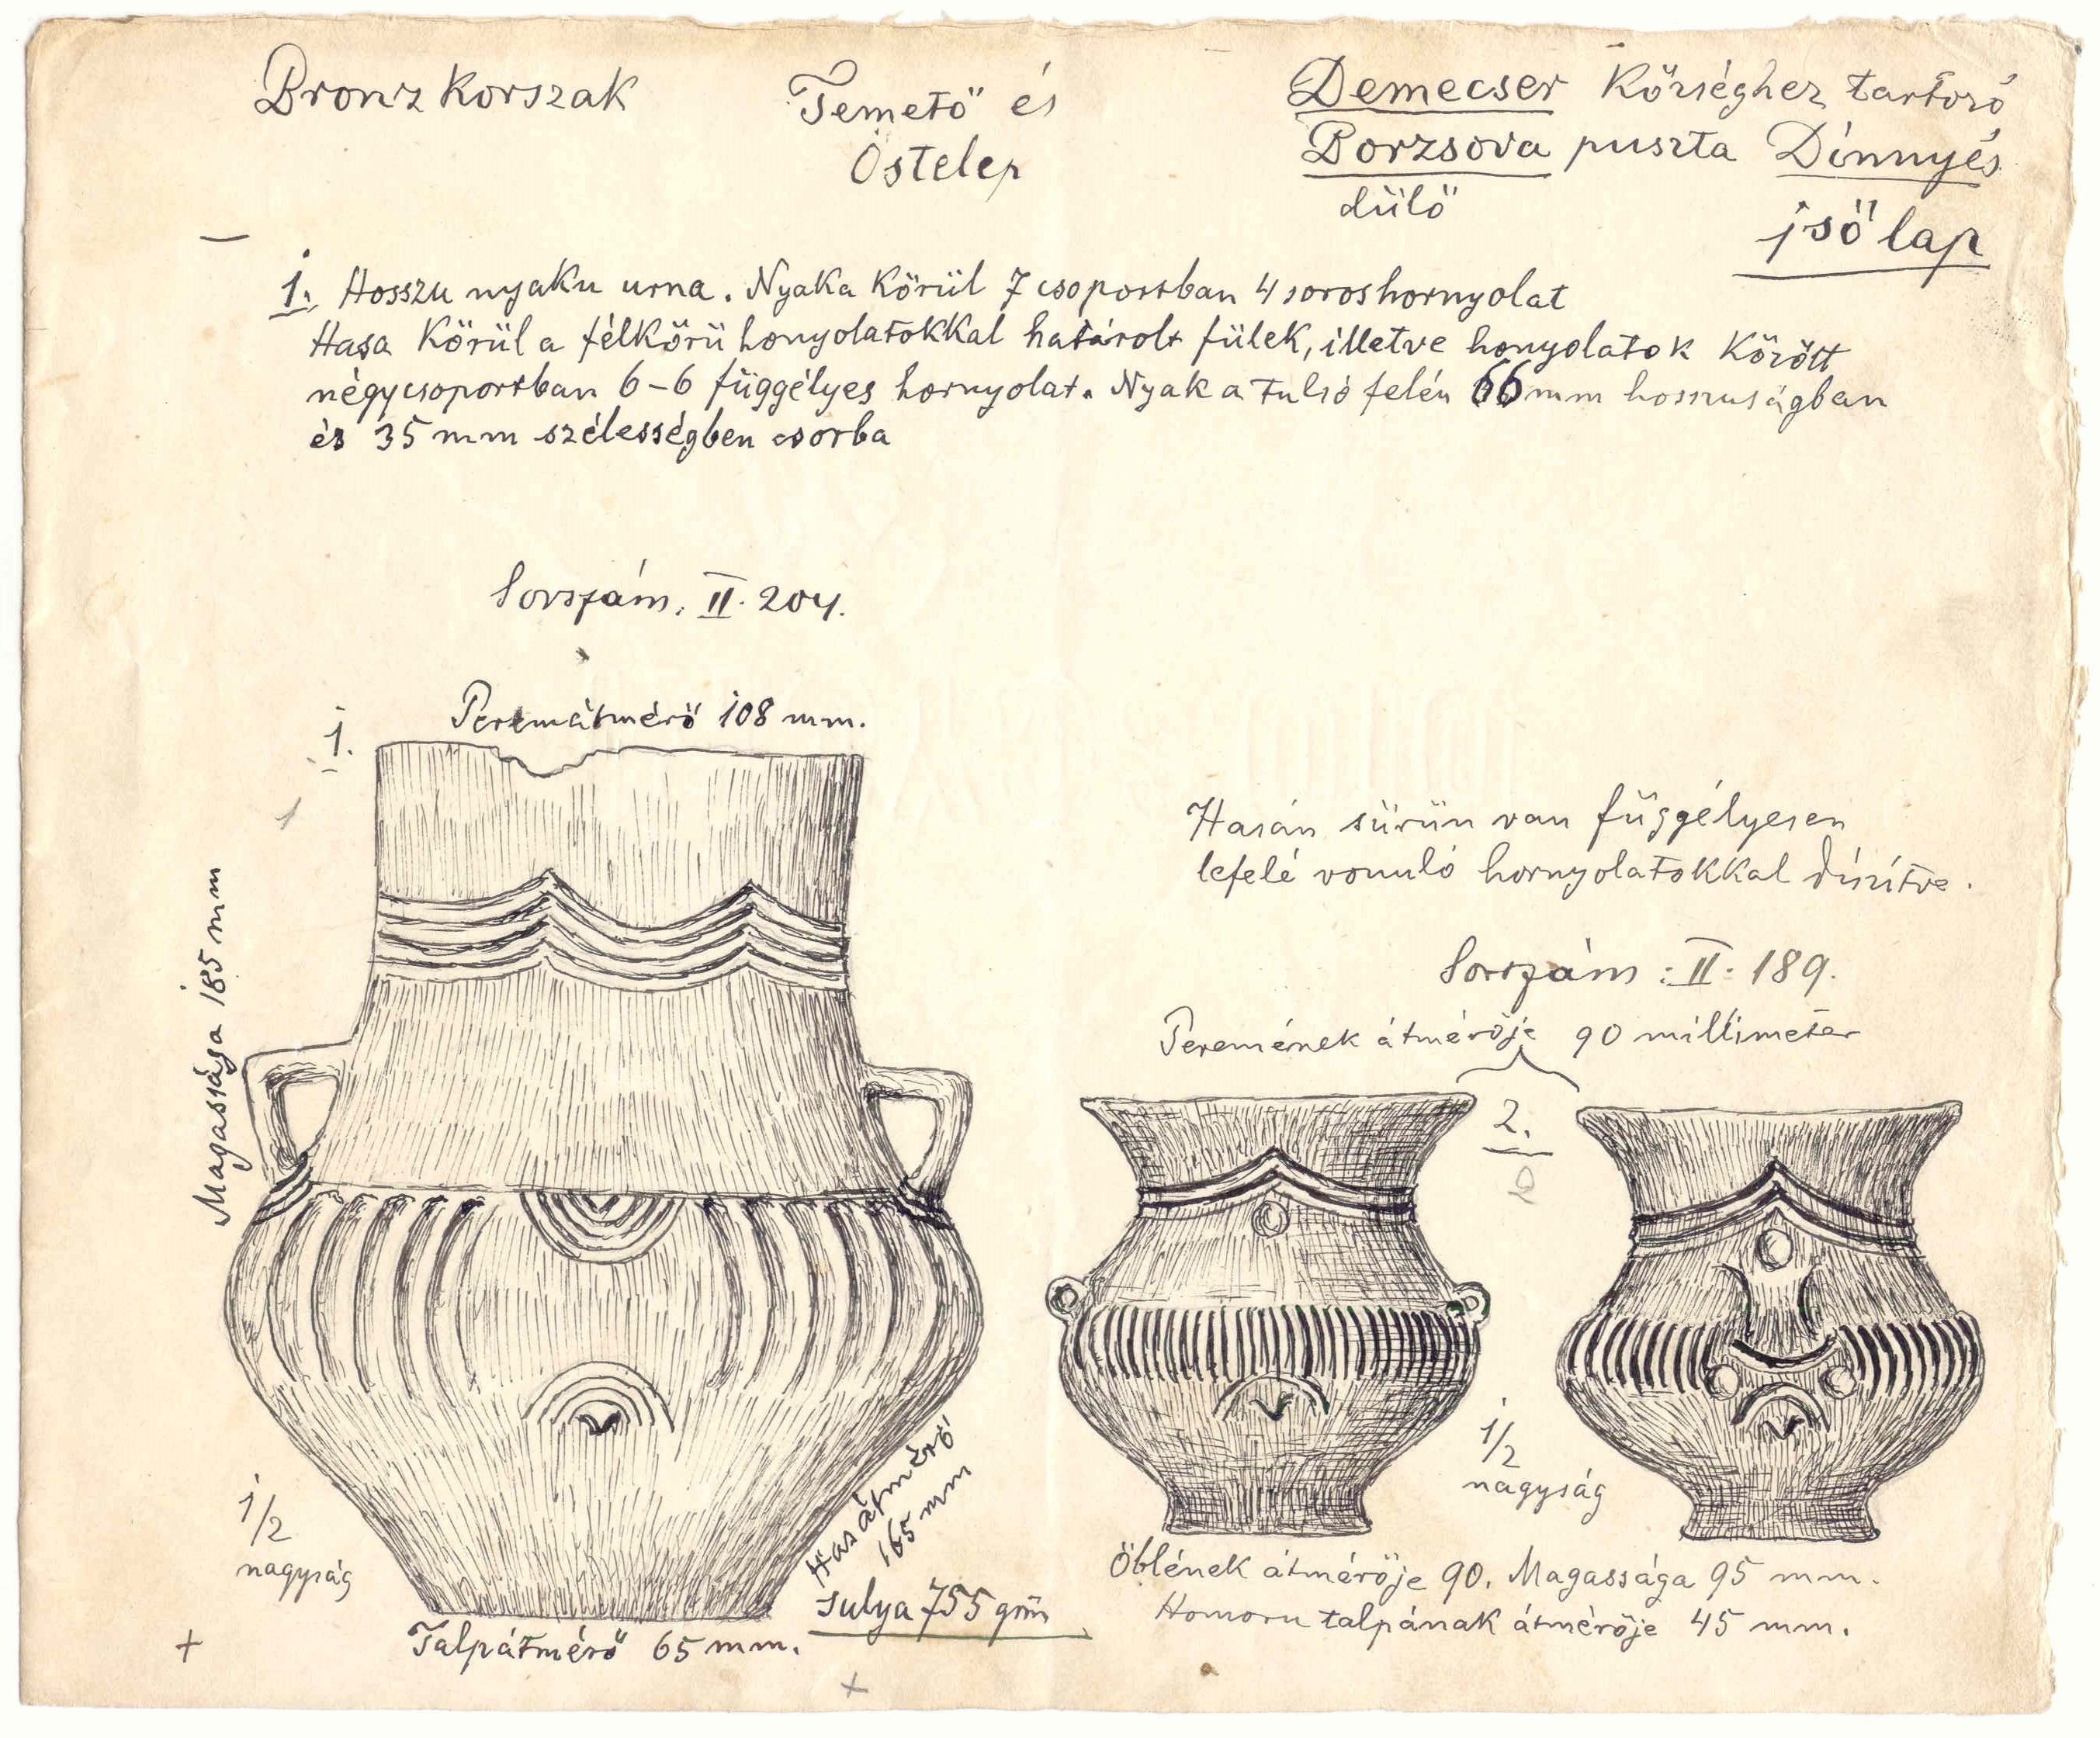 Bronz Korszak
Temető és
Őstelep
Demecser Községhez tartozó
Borzsova puszta Dinnyés
dülő
1ső lap
1. Hosszu nyaku urna. Nyaka körül 7 csoportban 4 soros hornyolat
Hasa körül a félkörü honyolatokkal határolt fülek, illetve honyolatok között
négycsoportban 6-6 függélyes hornyolat. Nyak a tulsó felén 66 mm hosszuságban
és 35 mm szélességben csorba
Sorszám. II. 204.
1.
Peremátmérő 108 mm.
Magassága 185 mm
1/2
nagyság
Talpátmérő 65 mm.
Hasátmérő
165 mm
sulya 755 grm
Hasán sürün van függélyesen
lefelé vonuló hornyolatokkal díszítve.
Sorszám: II. 189.
Peremének átmérője 90 milliméter
2.
2
1/2
nagyság
Öblének átmérője 90. Magassága 95 mm.
Homoru talpának átmérője 45 mm.